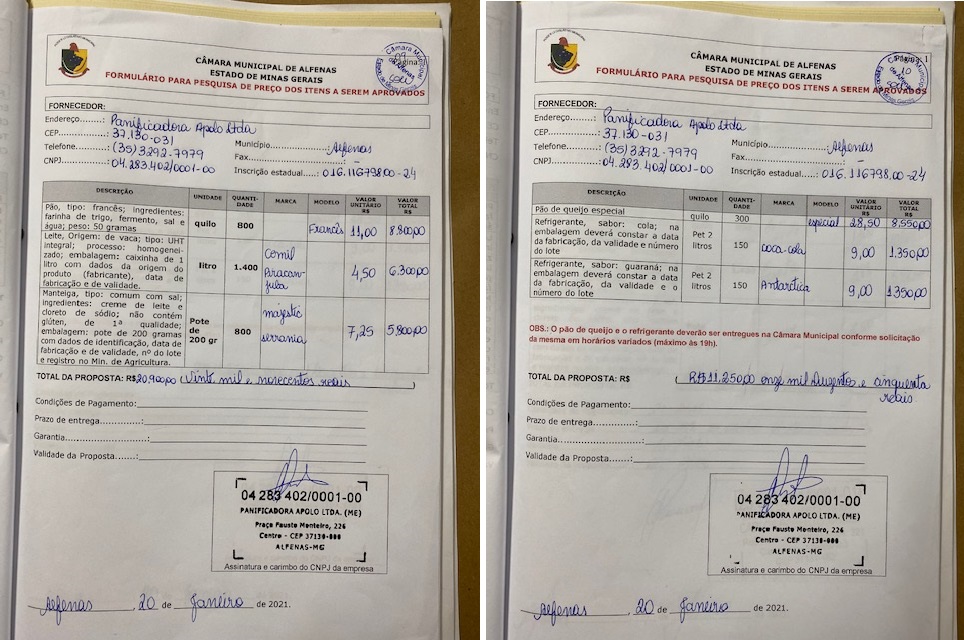 CÂMARA MUNICIPAL DE ALFENAS
ESTADO DE MINAS GERAIS
FORMULÁRIO PARA PESQUISA DE PREÇO DOS ITENS A SEREM APROVADOS
Câmara Municipal
de Alfenas
Página
09
FORNECEDOR:
Endereço........: Panificadora Apolo Ltda
CEP..............: 37.130-031
Município................: Alfenas
Telefone.........: (35) 3292-7979
Fax........................: -
CNPJ.............: 04.283.402/0001-00
Inscrição estadual....: 016.116798.00-24
DESCRIÇÃO UNIDADE QUANTIDADE MARCA MODELO VALOR UNITÁRIO R$ VALOR TOTAL R$
Pão, tipo: francês; ingredientes:
farinha de trigo, fermento, sal e
água; peso: 50 gramas
quilo 800 Francês 11,00 8.800,00
Leite, Origem: de vaca; tipo: UHT
integral; processo: homogenei-
zado; embalagem: caixinha de 1
litro com dados da origem do
produto (fabricante), data de
fabricação e de validade.
litro 1.400 Cemil 4,50 6.300,00
Manteiga, tipo: comum com sal;
ingredientes: creme de leite e
cloreto de sódio; não contém
glúten, de 1ª qualidade;
embalagem: pote de 200 gramas
com dados de identificação, data de
fabricação e de validade, nº do lote
e registro no Min. de Agricultura.
Pote de 200 gr 800 majestic serrania 7,25 5.800,00
TOTAL DA PROPOSTA: R$ 20.900,00 (Vinte mil e novecentos reais)
Condições de Pagamento:
Prazo de entrega..............:
Garantia.........................:
Validade da Proposta.......:
04 283 402/0001-00
PANIFICADORA APOLO LTDA. (ME)
Praça Fausto Monteiro, 226
Centro - CEP 37130-000
ALFENAS-MG
Assinatura e carimbo do CNPJ da empresa
Alfenas, 20 de Janeiro de 2021.
CÂMARA MUNICIPAL DE ALFENAS
ESTADO DE MINAS GERAIS
FORMULÁRIO PARA PESQUISA DE PREÇO DOS ITENS A SEREM APROVADOS
Página 1
10
FORNECEDOR:
Endereço........: Panificadora Apolo Ltda
CEP..............: 37.130-031
Município................: Alfenas
Telefone.........: (35) 3292-7979
Fax........................: -
CNPJ.............: 04.283.402/0001-00
Inscrição estadual....: 016.116798.00-24
DESCRIÇÃO UNIDADE QUANTI-DADE MARCA MODELO VALOR UNITÁRIO R$ VALOR TOTAL R$
Pão de queijo especial quilo 300 especial 28,50 8.550,00
Refrigerante, sabor: cola; na
embalagem deverá constar a data
da fabricação, da validade e número
do lote
Pet 2 litros 150 coca-cola 9,00 1.350,00
Refrigerante, sabor: guaraná; na
embalagem deverá constar a data
da fabricação, da validade e o
número do lote
Pet 2 litros 150 Antarctica 9,00 1.350,00
OBS.: O pão de queijo e o refrigerante deverão ser entregues na Câmara Municipal conforme solicitação
da mesma em horários variados (máximo às 19h).
TOTAL DA PROPOSTA: R$ (R$ 11.250,00 onze mil duzentos e cinquenta
reais
Condições de Pagamento:
Prazo de entrega..............:
Garantia.........................:
Validade da Proposta.......:
04 283 402/0001-00
PANIFICADORA APOLO LTDA. (ME)
Praça Fausto Monteiro, 226
Centro - CEP 37130-000
ALFENAS-MG
Assinatura e carimbo do CNPJ da empresa
Alfenas, 20 de Janeiro de 2021.